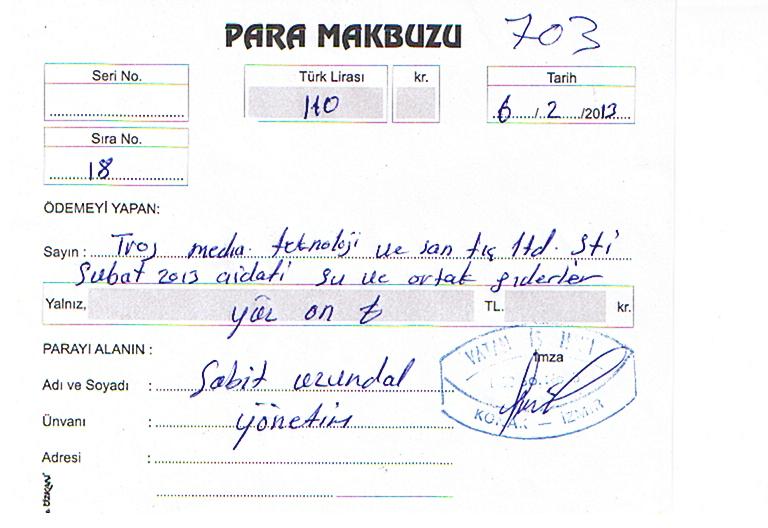 PARA MAKBUZU 703
Seri No.
Türk Lirası kr.
110
Tarih
6/2/2013
Sıra No.
18
ÖDEMEYİ YAPAN:
Sayın : Troj media teknoloji ve san tiç ltd. şti
Şubat 2013 aidatı su ve ortak giderler
Yalnız, yüz on TL. kr.
PARAYI ALANIN :
İmza
Adı ve Soyadı : Sabit uzundal
Ünvanı : yönetim
Adresi :
VATAN İŞ HANI
KONAK — İZMİR